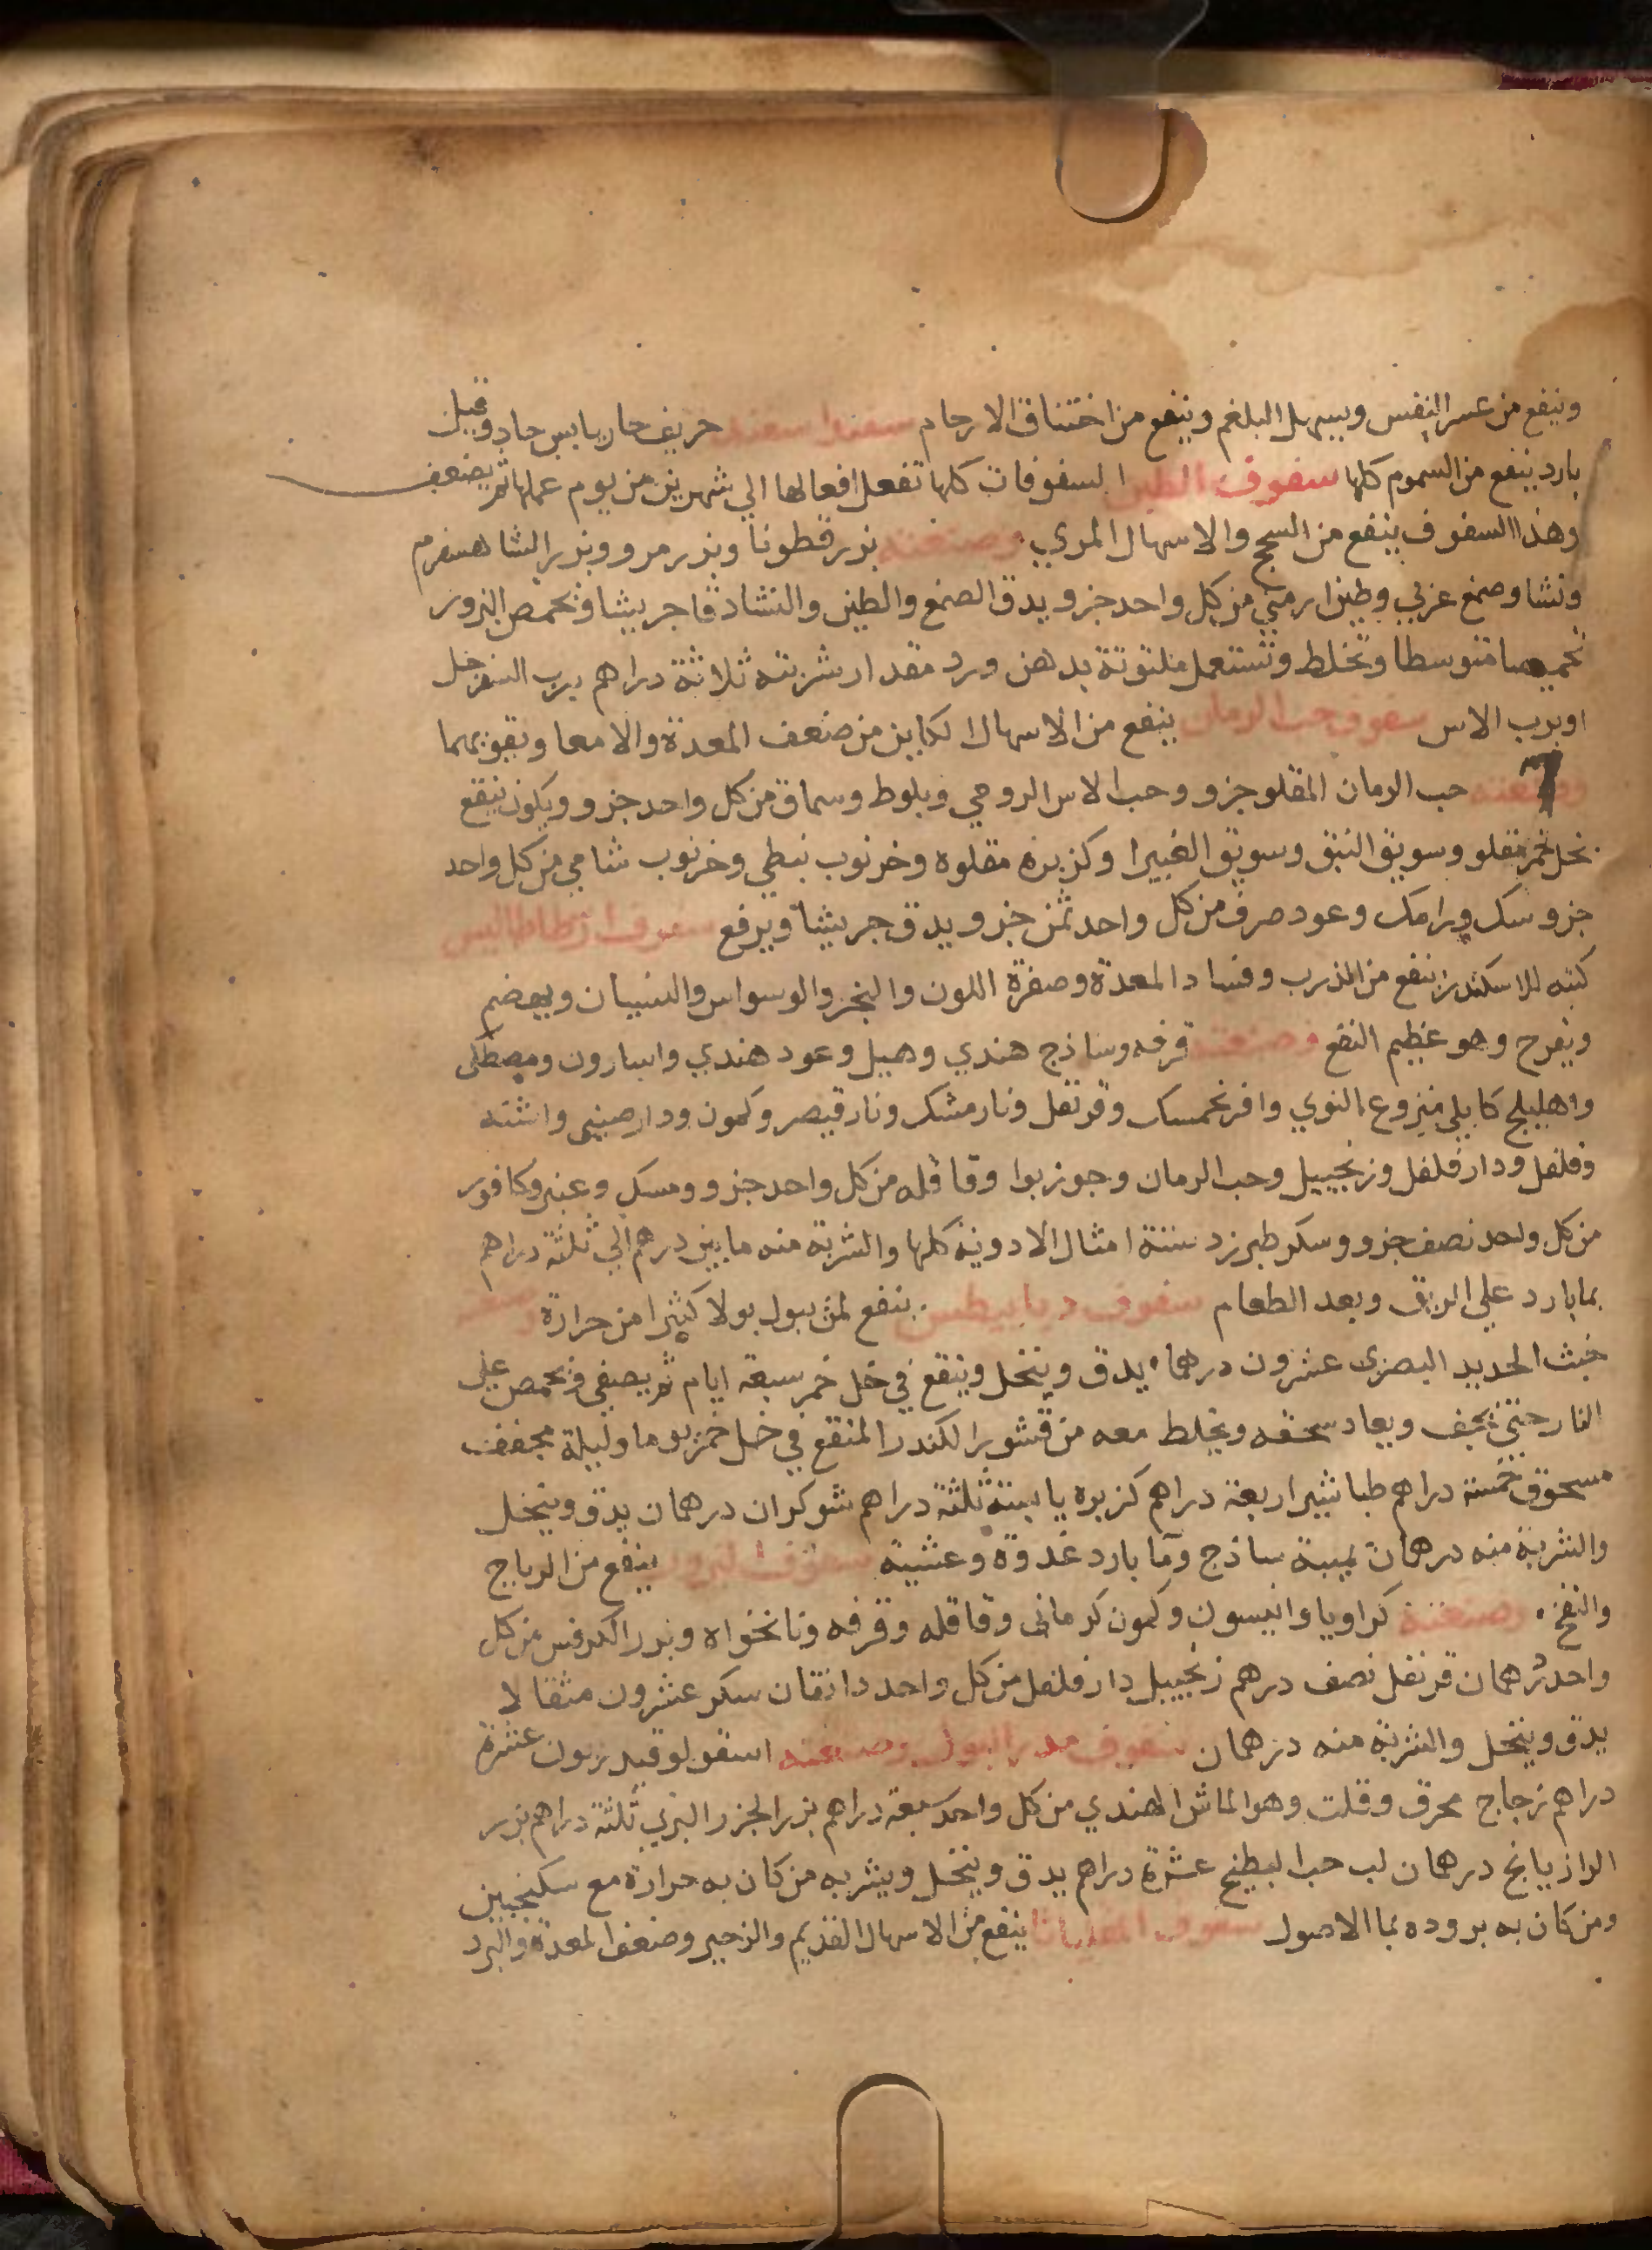 وينفع من عسر النفس ويسهل البلغم وينفع من اختناق الارحام سفندا سفند حريف حار يابس حاد وقيل
بارد ينفع من السموم كلها سفوف الطين السفوفات كلها تفعل افعالها الي شهرين من يوم عملها ثم يضعف
وهذا السفوف ينفع من السحج والاسهال المري وصنعته بزر قطونا وبزر مرو وبزر الشاهسفرم
ونشا وصمغ عربي وطين ارمني من كل واحد جزو يدق الصمغ والطين والنشا دقا جريشا وتحمص البزور
تحميصا متوسطا وتخلط وتستعمل ملتوتة بدهن ورد مقدار شربته ثلاثة دراهم برب السفرجل
اوبرب الاس سفوف حب الرمان ينفع من الاسهال الكاين من ضعف المعدة والامعا ويقويهما
وصنعته حب الرمان المقلو جزو وحب الاس الرومي وبلوط وسماق من كل واحد جزو وبكون ينقع
بخل خمر مقلو وسويق النبق وسويق الغبيرا وكزبره مقلوه وخرنوب نبطي وخرنوب شامي من كل واحد
جزو سك ورامك وعود صرف من كل واحد ثمن جزو يدق جريشا ويرفع سفوف ارطاطاليس
كتبه للاسكندر ينفع من الذرب وفساد المعدة وصفرة اللون والبخر والوسواس والنسيان ويهضم
ويفرح وهو عظيم النفع وصنعته قرفه وساذج هندي وهيل وعود هندي واسارون ومصطكى
واهليلج كابلي منزوع النوي وافرنجمسك وقرنفل ونارمشك ونارقيصر وكمون ودارصيني واشنه
وفلفل ودارفلفل وزنجبيل وحب الرمان وجوزبوا وقاقله من كل واحد جزو ومسك وعنبر وكافور
من كل واحد نصف جزو وسكر طبرزد ستة امثال الادوية كلها والشربة منه ما بين درهم الي ثلثة دراهم
بما بارد علي الريق وبعد الطعام سفوف ديابيطس ينفع لمن يبول بولا كثيرا من حرارة
خبث الحديد البصري عشرون درهما يدق وينخل وينقع في خل خمر سبعة ايام ثم يصفي ويحمص علي
النار حتي يجف ويعاد سحقه ويخلط معه من قشور الكندر المنقع في خل خمر يوما وليلة مجفف
مسحوق خمسة دراهم طباشير اربعة دراهم كزبره يابسة ثلثة دراهم شوكران درهمان يدق وينخل
والشربة منه درهمان بميبة ساذج وما بارد غدوة وعشية سفوف البزور ينفع من الرياح
والنفخ وصنعته كراويا وانيسون وكمون كرماني وقاقله وقرفه ونانخواه وبزر الكرفس من كل
واحد درهمان قرنفل نصف درهم زنجبيل دارفلفل من كل واحد دانقان سكر عشرون مثقالا
يدق وينخل والشربة منه درهمان سفوف مدر البول وصنعته اسقولوقيدريون عشرة
دراهم زجاج محرق وقلت وهو الماش الهندي من كل واحد سبعة دراهم بزر الجزر البري ثلثة دراهم بزر
الرازيانج درهمان لب حب البطيخ عشرة دراهم يدق وينخل ويشربه من كان به حرارة مع سكنجبين
ومن كان به بروده بما الاصول سفوف المقلياثا ينفع من الاسهال القديم والزحير وضعف المعدة والبرد